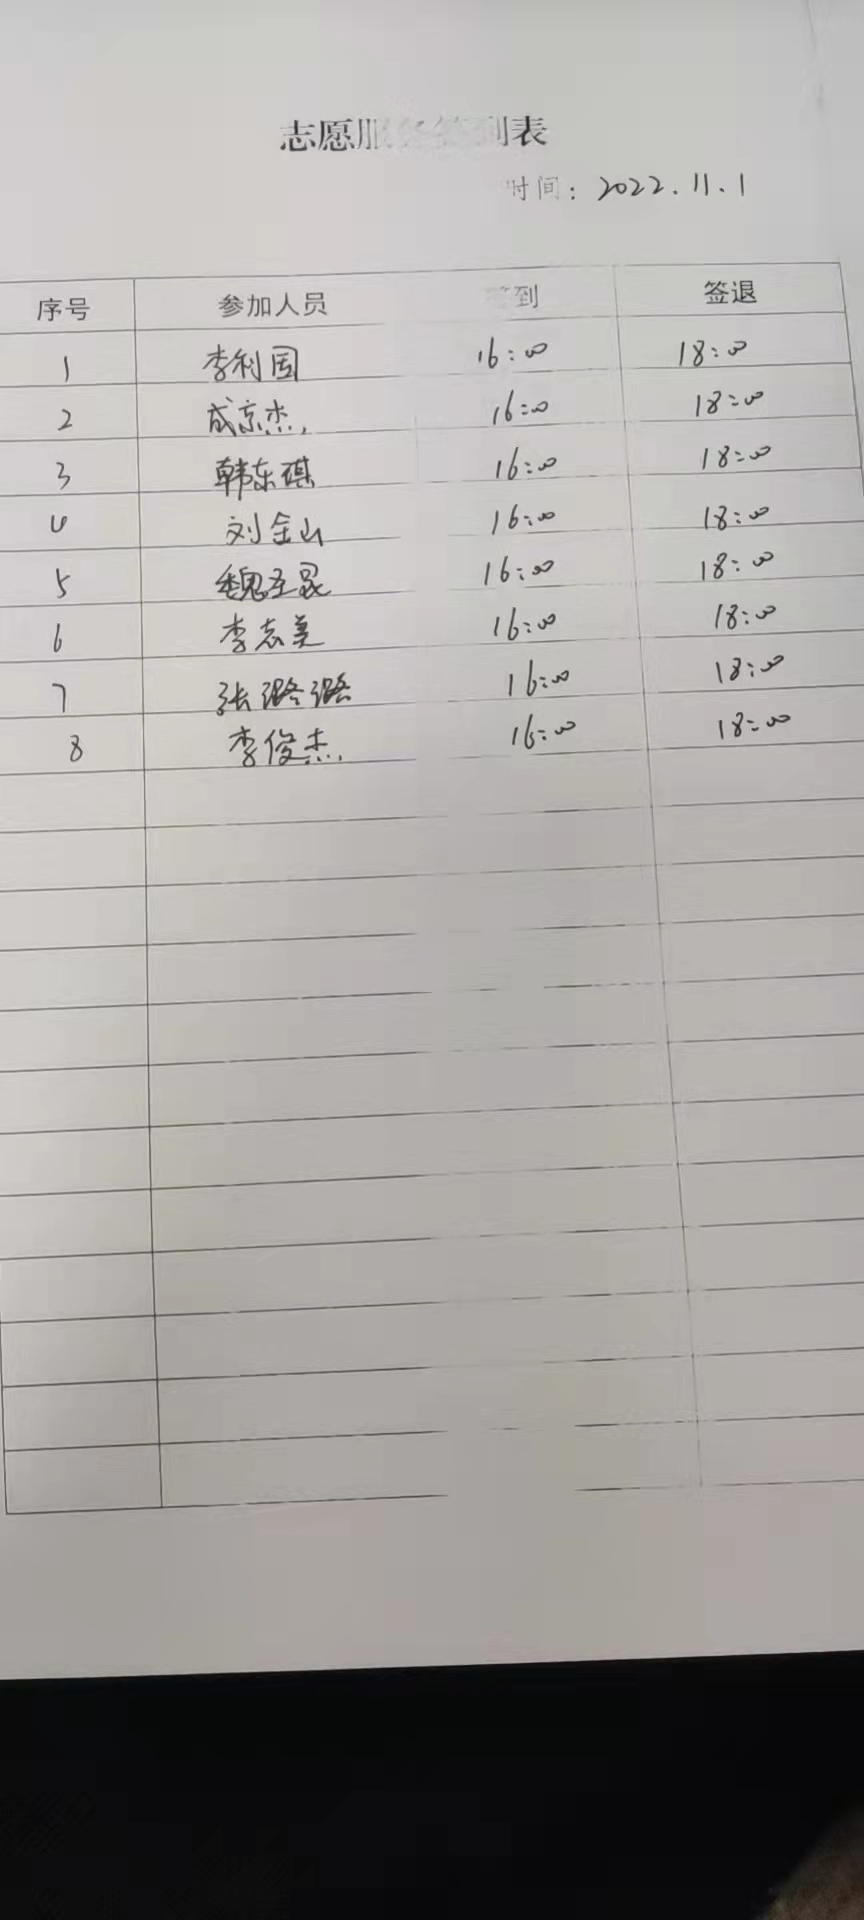 志愿服务签到表
时间：2022.11.1
序号 参加人员 签到 签退
1 李利国 16:00 18:00
2 成京杰 16:00 18:00
3 韩东祺 16:00 18:00
4 刘金山 16:00 18:00
5 魏至晟 16:00 18:00
6 李志美 16:00 18:00
7 张潞潞 16:00 18:00
8 李俊杰 16:00 18:00